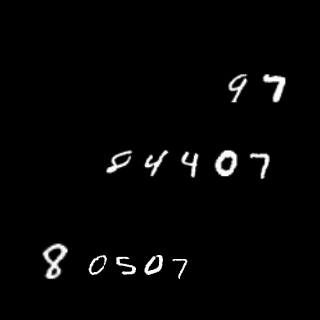 97
84407
80507